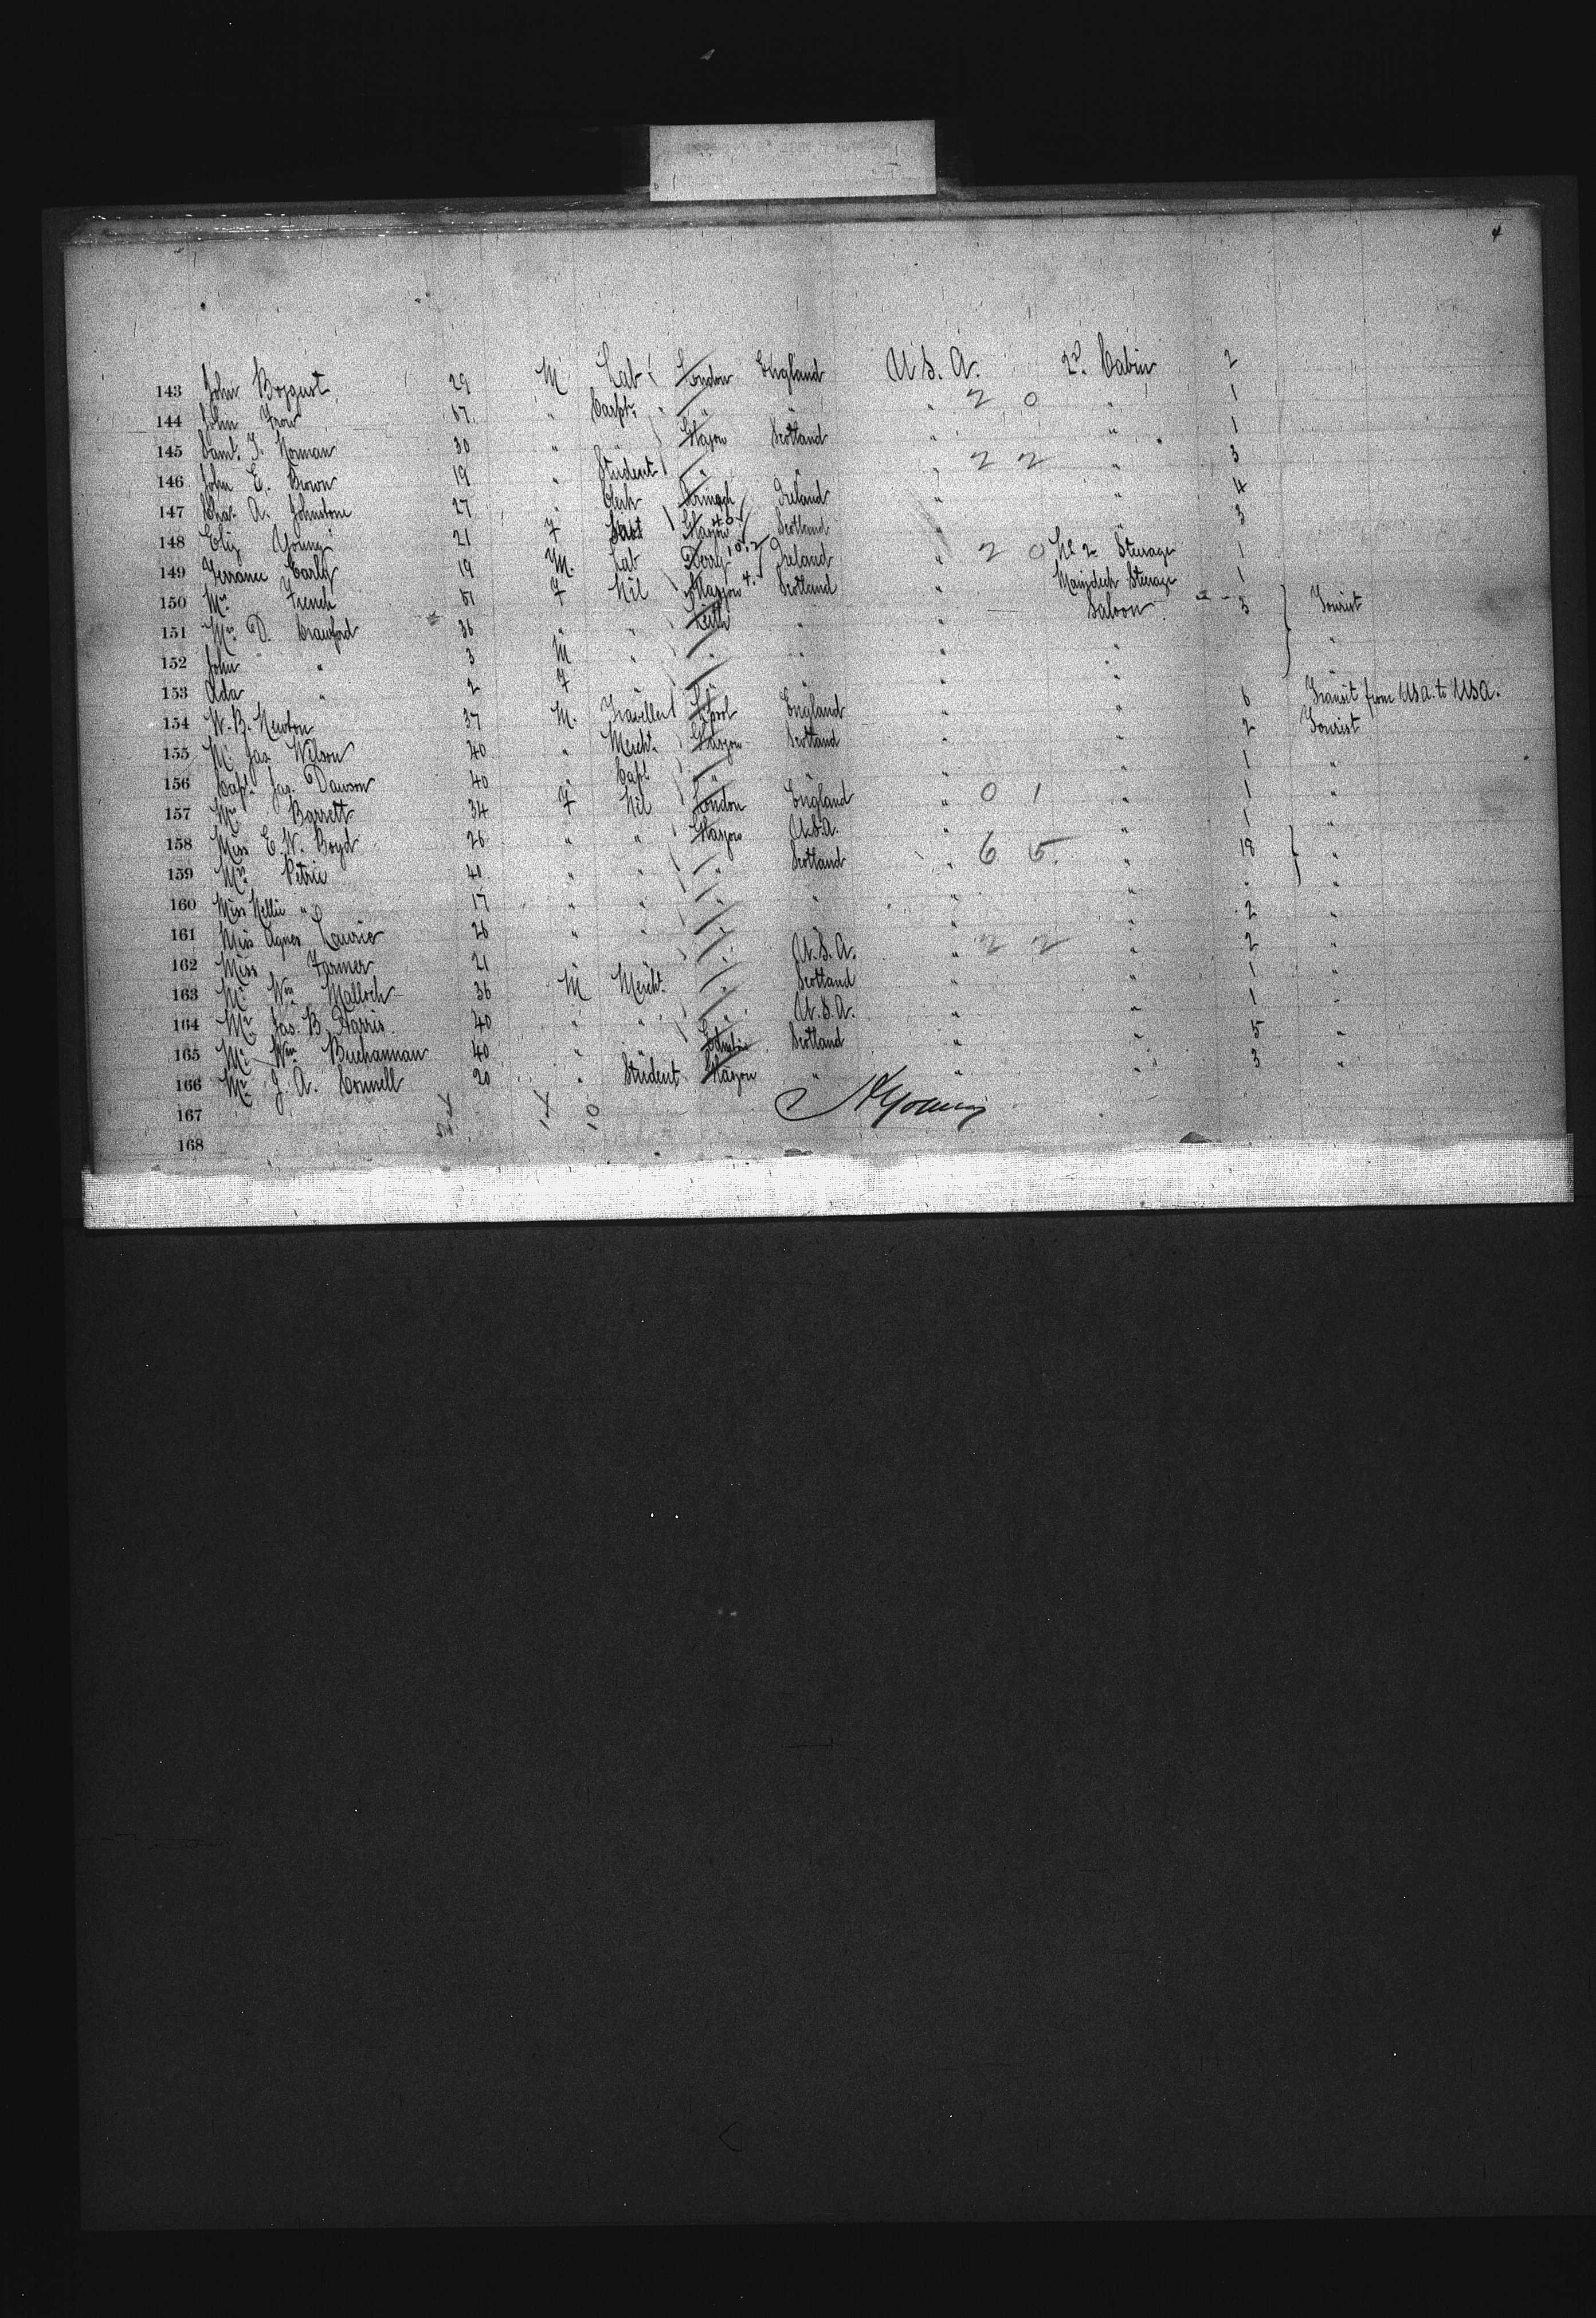 4
143 John Bozgust 29 M Lab London England U.S.A. 2d. Cabin 2
144 John Frow 67 " Carptr " " " 2 0 " 1
145 Saml. J. Norman 30 " " Glasgow Scotland " " 1
146 John E. Brown 19 " Student " " " 2 2 " 3
147 Chas. A. Johnstone 27 " Clerk Armagh Ireland " " 4
148 Eliz Young 21 F Glasgow Scotland " 3
149 Terrance Early 19 M. Lab Derry Ireland " 2 0 No 2 Steerage 1
150 Mrs. French 51 F Nil Glasgow Scotland " Maindeck Steerage 1
151 Mrs. D. Crawford 36 " " Leith " " Saloon 3 Tourist
152 John " 3 M " " " " " "
153 Ada " 2 F " " " " "
154 W. B. Newton 37 M. Traveller L'pool England " " 6 Transit from USA. to USA.
155 Mr. Jas. Wilson 40 " Mercht. Glasgow Scotland " " 2 Tourist
156 Capt. Jas. Dawson 40 " Capt " " " " 1 "
157 Mrs. Barrett 34 F Nil London England " 0 1 " 1 "
158 Miss E. W. Boyd 26 " " Glasgow U.S.A. " " 1 "
159 Mrs. Petrie 41 " " " Scotland " 6 5 " 18 "
160 Miss Nellie " 17 " " " " " " " "
161 Miss Agnes Lawrie 26 " " " " " 2 "
162 Miss Farmer 21 " " " U.S.A. " 2 2 " 2 "
163 Mr. Wm Malloch 36 M Mercht. " Scotland " " 1 "
164 Mr. Jas. B. Harris 40 " " " U.S.A. " " 1
165 Mr. Wm Buchannan 40 " " Edinbro Scotland " " 5 "
166 Mr. J. A. Connell 20 " Student Glasgow " " " 3 "
167
168